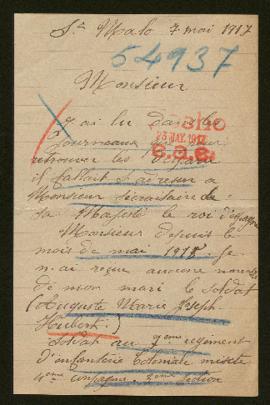 St Malo 7 mai 1917
54937
Monsieur
J ai lu dans les
journeaux
retrouver les
il fallait s adresser a
Monsieur secretaire de
sa Majesté le roi d'Espagne
Monsieur depuis le
mois de mai Je
n ai reçue aucune
de mon mari le Soldat
(Auguste Marie Joseph
Hubert)
Soldat au regiment
d'infanterie Coloniale mixte
4eme compagnie 2eme Section